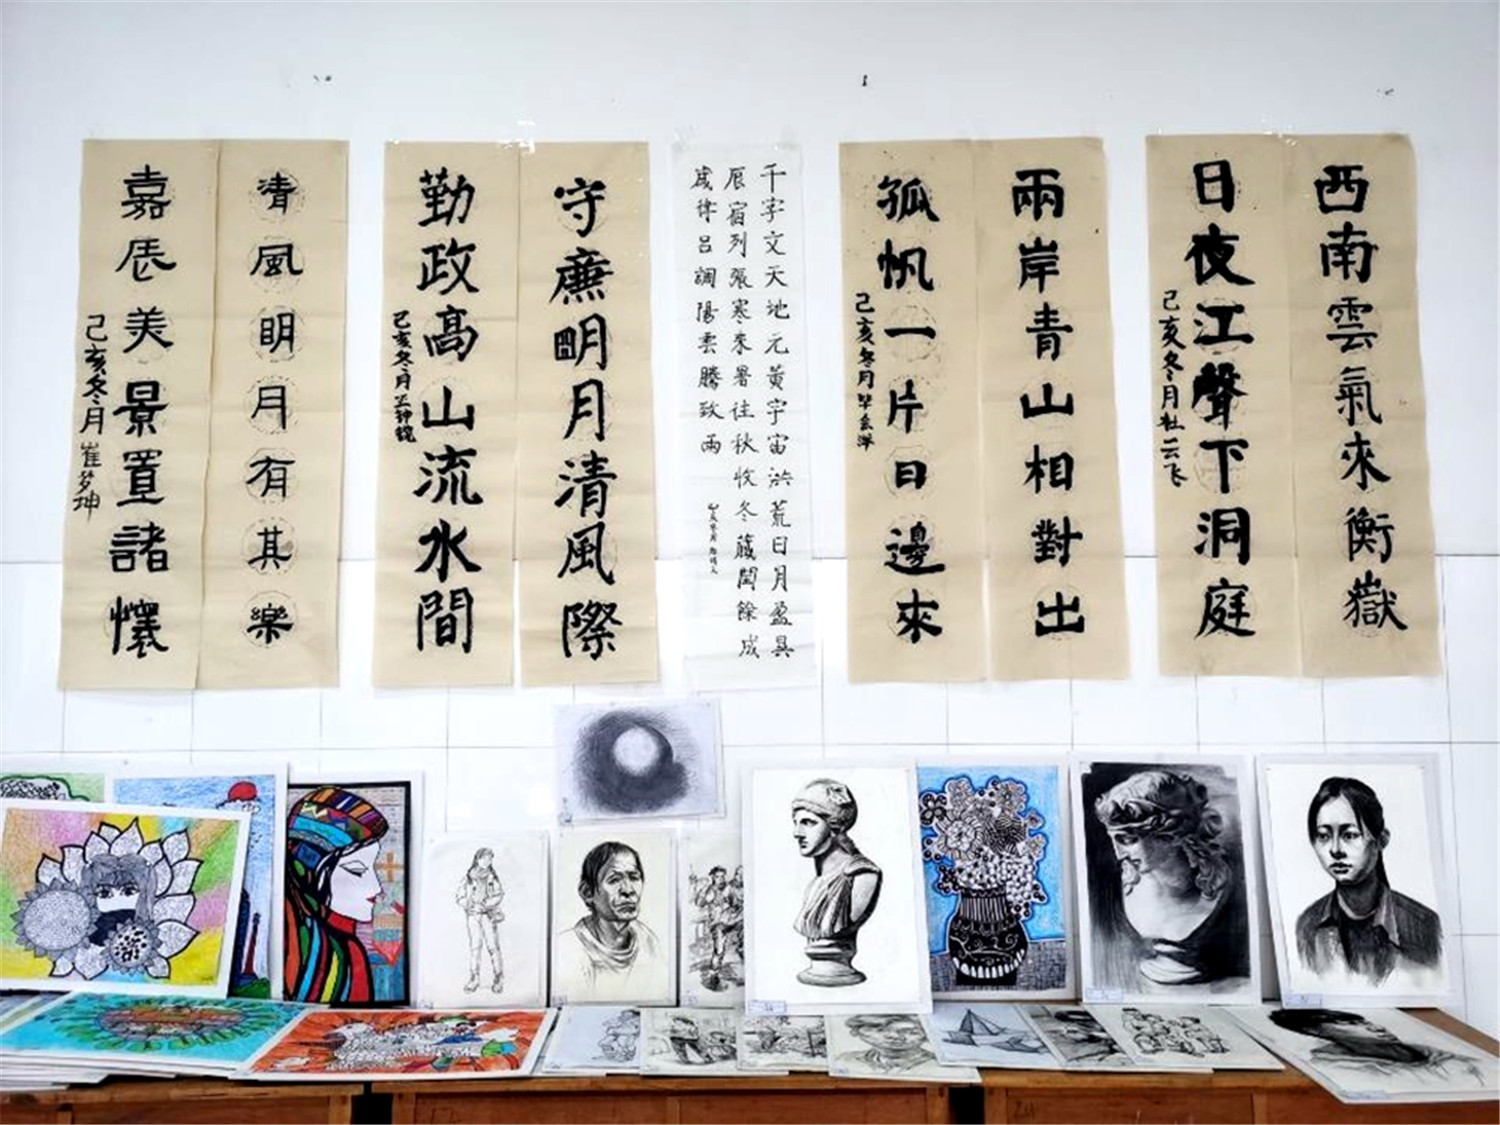 西南雲氣來衡嶽
日夜江聲下洞庭
己亥冬月杜云飞
兩岸青山相對出
孤帆一片日邊來
己亥冬月
千字文天地元黃宇宙洪荒日月盈昃
辰宿列張寒來暑往秋收冬藏閏餘成
歲律呂調陽雲騰致雨
守廉朙月清風際
勤政高山流水間
己亥冬月
清風眀月有其樂
嘉辰美景置諸懷
己亥冬月崔梦坤